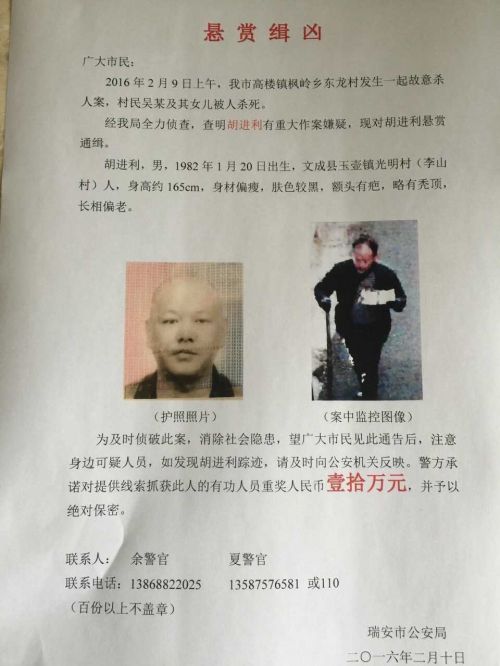 悬赏缉凶
广大市民：
2016 年 2 月 9 日上午，我市高楼镇枫岭乡东龙村发生一起故意杀
人案，村民吴某及其女儿被人杀死。
经我局全力侦查，查明胡进利有重大作案嫌疑，现对胡进利悬赏
通缉。
胡进利，男，1982 年 1 月 20 日出生，文成县玉壶镇光明村（李山
村）人，身高约 165cm，身材偏瘦，肤色较黑，额头有疤，略有秃顶，
长相偏老。
（护照照片）
（案中监控图像）
为及时侦破此案，消除社会隐患，望广大市民见此通告后，注意
身边可疑人员，如发现胡进利踪迹，请及时向公安机关反映。警方承
诺对提供线索抓获此人的有功人员重奖人民币壹拾万元，并予以
绝对保密。
联系人： 余警官 夏警官
联系电话：13868822025 13587576581 或110
（百份以上不盖章）
瑞安市公安局
二〇一六年二月十日